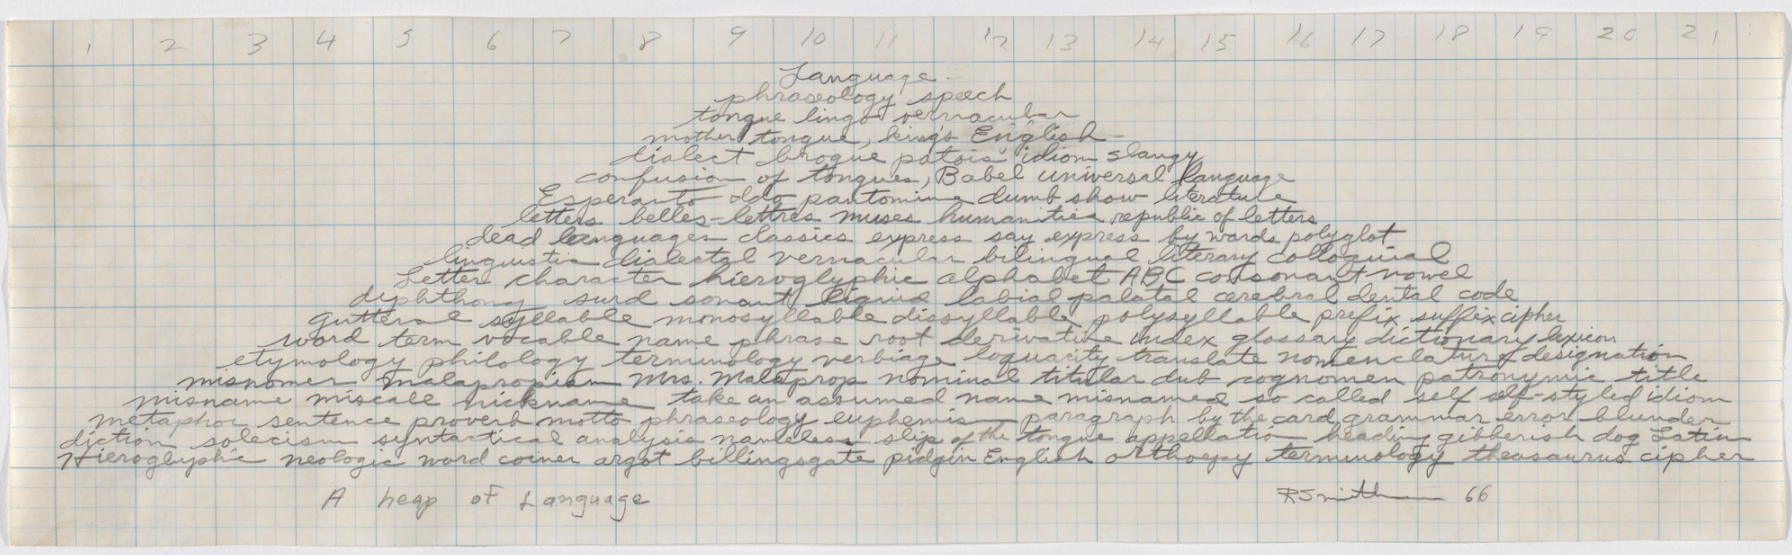 1 2 3 4 5 6 7 8 9 10 11 12 13 14 15 16 17 18 19 20 21
Language
phraseology speech
tongue lingo vernacular
mother tongue, king's English
dialect brogue patois idiom slangy
confusion of tongues, Babel universal language
Esperanto Ido pantomime dumb show literature
letters belles-lettres muses humanities republic of letters
dead languages classics express say express by words polyglot
linguistic dialectal vernacular bilingual literary colloquial
Letter character hieroglyphic alphabet ABC consonant vowel
diphthong surd sonant liquid labial palatal cerebral dental code
gutteral syllable monosyllable dissyllable polysyllable prefix suffix cipher
word term vocable name phrase root derivative index glossary dictionary lexicon
etymology philology terminology verbiage loquacity translate nomenclature designation
misnomer malapropism Mrs. Malaprop nominal titular dub cognomen patronymic title
misname miscall nickname take an assumed name misnamed so called self self-styled idiom
metaphor sentence proverb motto phraseology euphemism paragraph by the card grammar error blunder
diction solecism syntactical analysis nameless slip of the tongue appellation heading gibberish dog Latin
Hieroglyphic neologic word coiner argot billingsgate pidgin English orthoepy terminology theasaurus cipher
A heap of Language
RSmithson 66